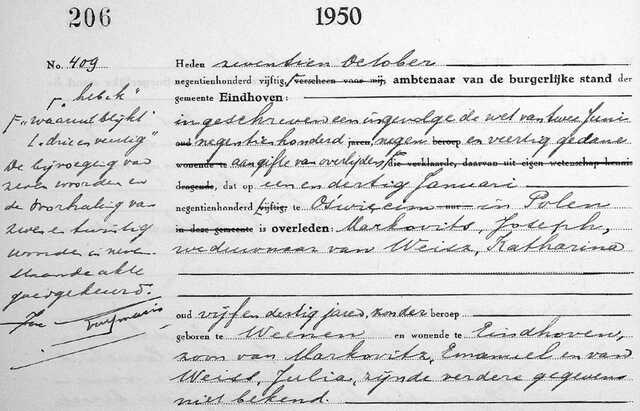 206
1950
No. 409
Heden zeventien October
negentienhonderd vijftig, verscheen voor mij, ambtenaar van de burgerlijke stand der
gemeente Eindhoven:
ingeschreven een ingevolge de wet van twee Juni
oud negentienhonderd jaren, negen beroep en veertig gedane
wonende te aangifte van overlijden die verklaarde, daarvan uit eigen wetenschap kennis
dragende, dat op een en dertig Januari
negentienhonderd vijftig, te Oswiecim in Polen
in deze gemeente is overleden: Markovits, Joseph,
weduwnaar van Weisz, Katharina
oud vijf en dertig jaren, zonder beroep
geboren te Weenen en wonende te Eindhoven,
zoon van Markovitz, Emanuel en van
Weiss, Julia, zijnde verdere gegevens
niet bekend.
"waaruit blijkt"
"drie en veertig"
De bijvoeging van
zeven woorden en
de doorhaling van
twee en twintig
woorden in neven-
staande akte
goedgekeurd.